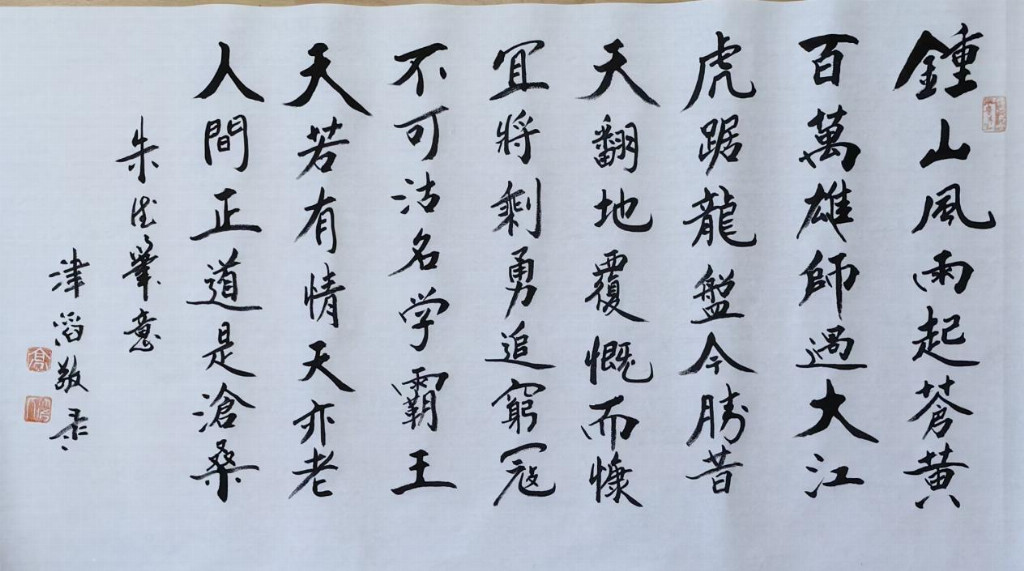 鍾山風雨起蒼黃
百萬雄師過大江
虎踞龍盤今勝昔
天翻地覆慨而慷
冝將剩勇追窮冦
不可沽名学霸王
天若有情天亦老
人間正道是滄桑
朱德筆意
津滔敬录